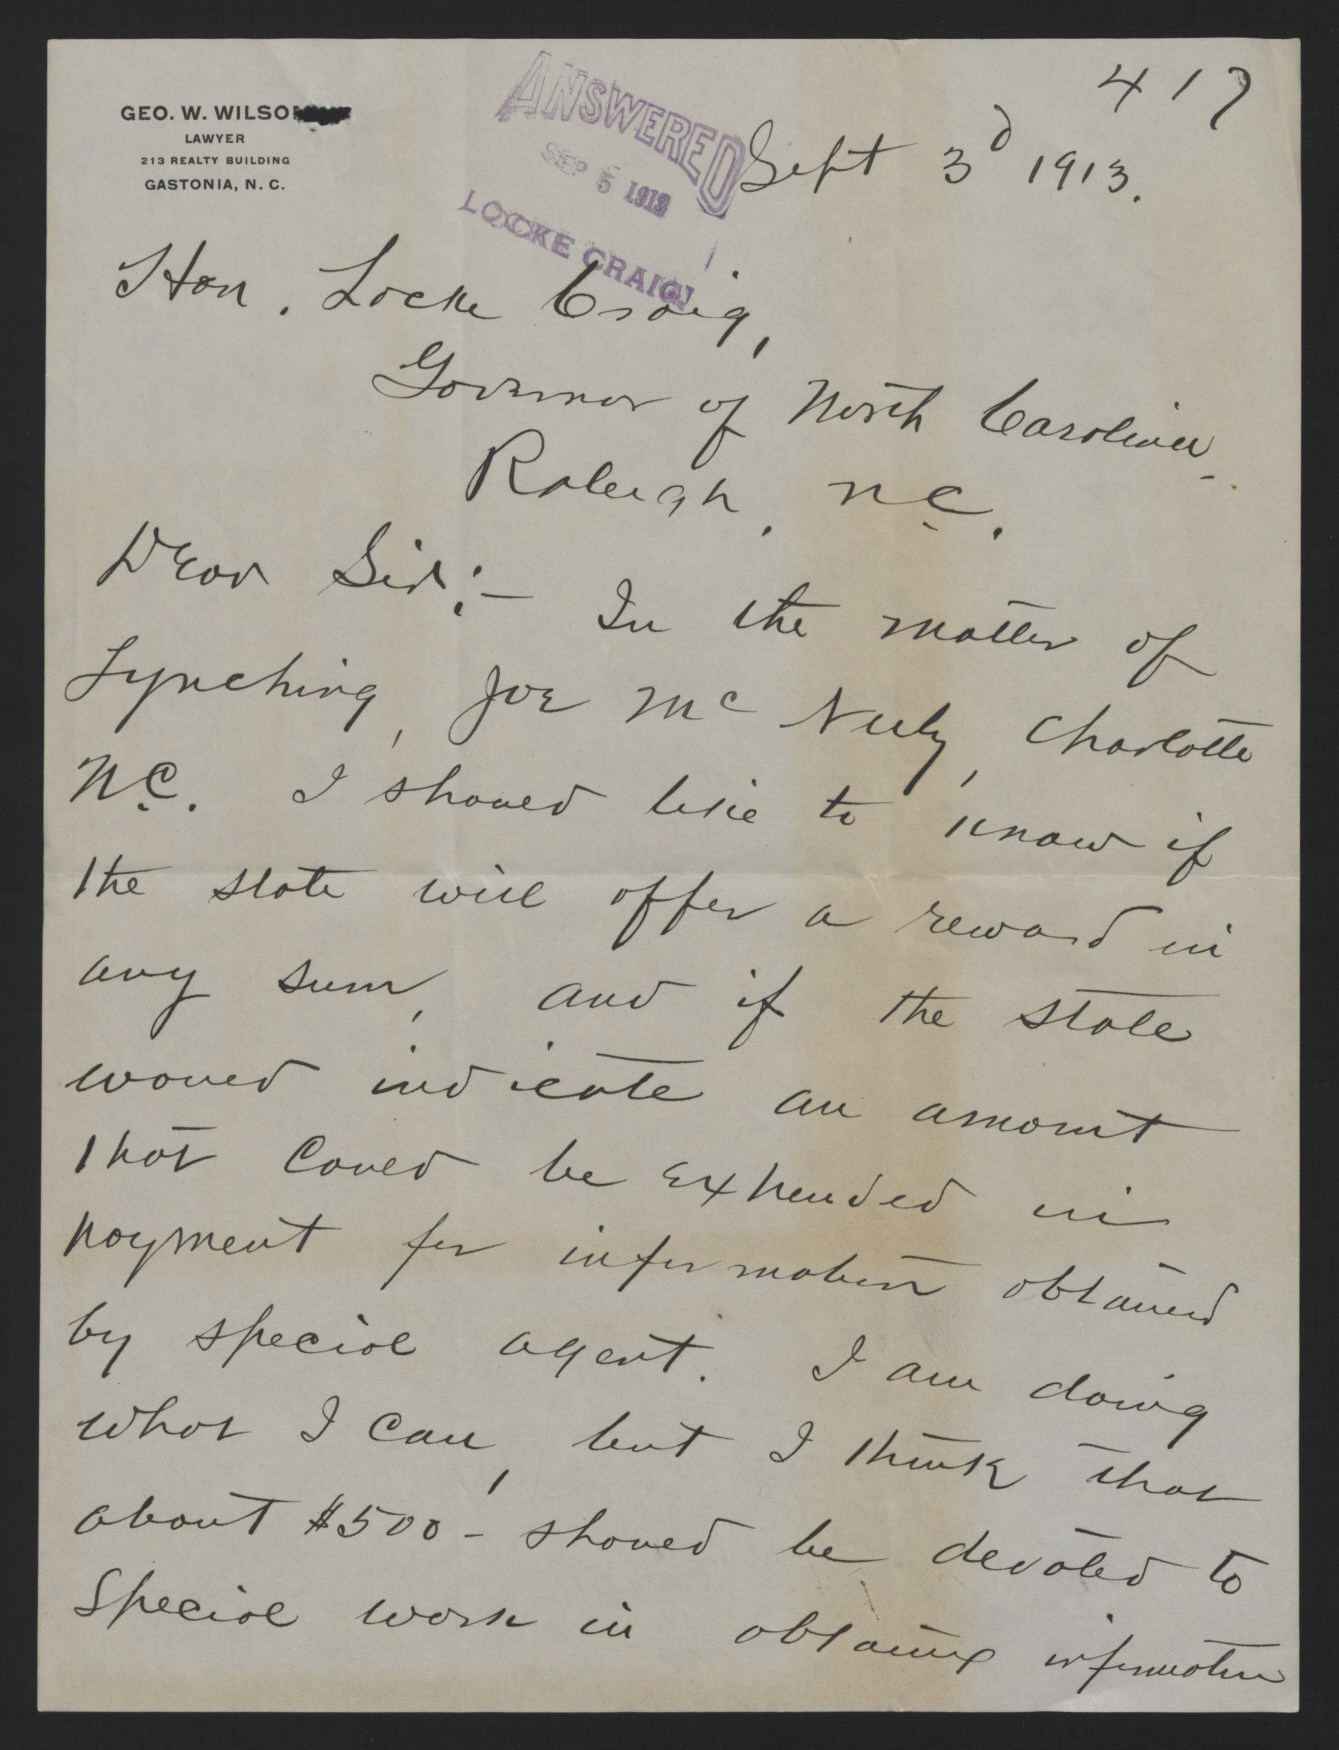 417
GEO. W. WILSON
LAWYER
213 REALTY BUILDING
GASTONIA, N. C.
ANSWERED
SEP 5 1913
LOCKE CRAIG
Sept 3d 1913.
Hon. Locke Craig,
Governor of North Carolina
Raleigh, N.C.
Dear Sir:- In the matter of
Lynching, Joe McNeely, Charlotte
N.C. I should like to know if
the state will offer a reward in
any sum, and if the state
would indicate an amount
that could be expended in
payment for information obtained
by special agent. I am doing
what I can, but I think that
about $500- should be devoted to
special work in obtaining information